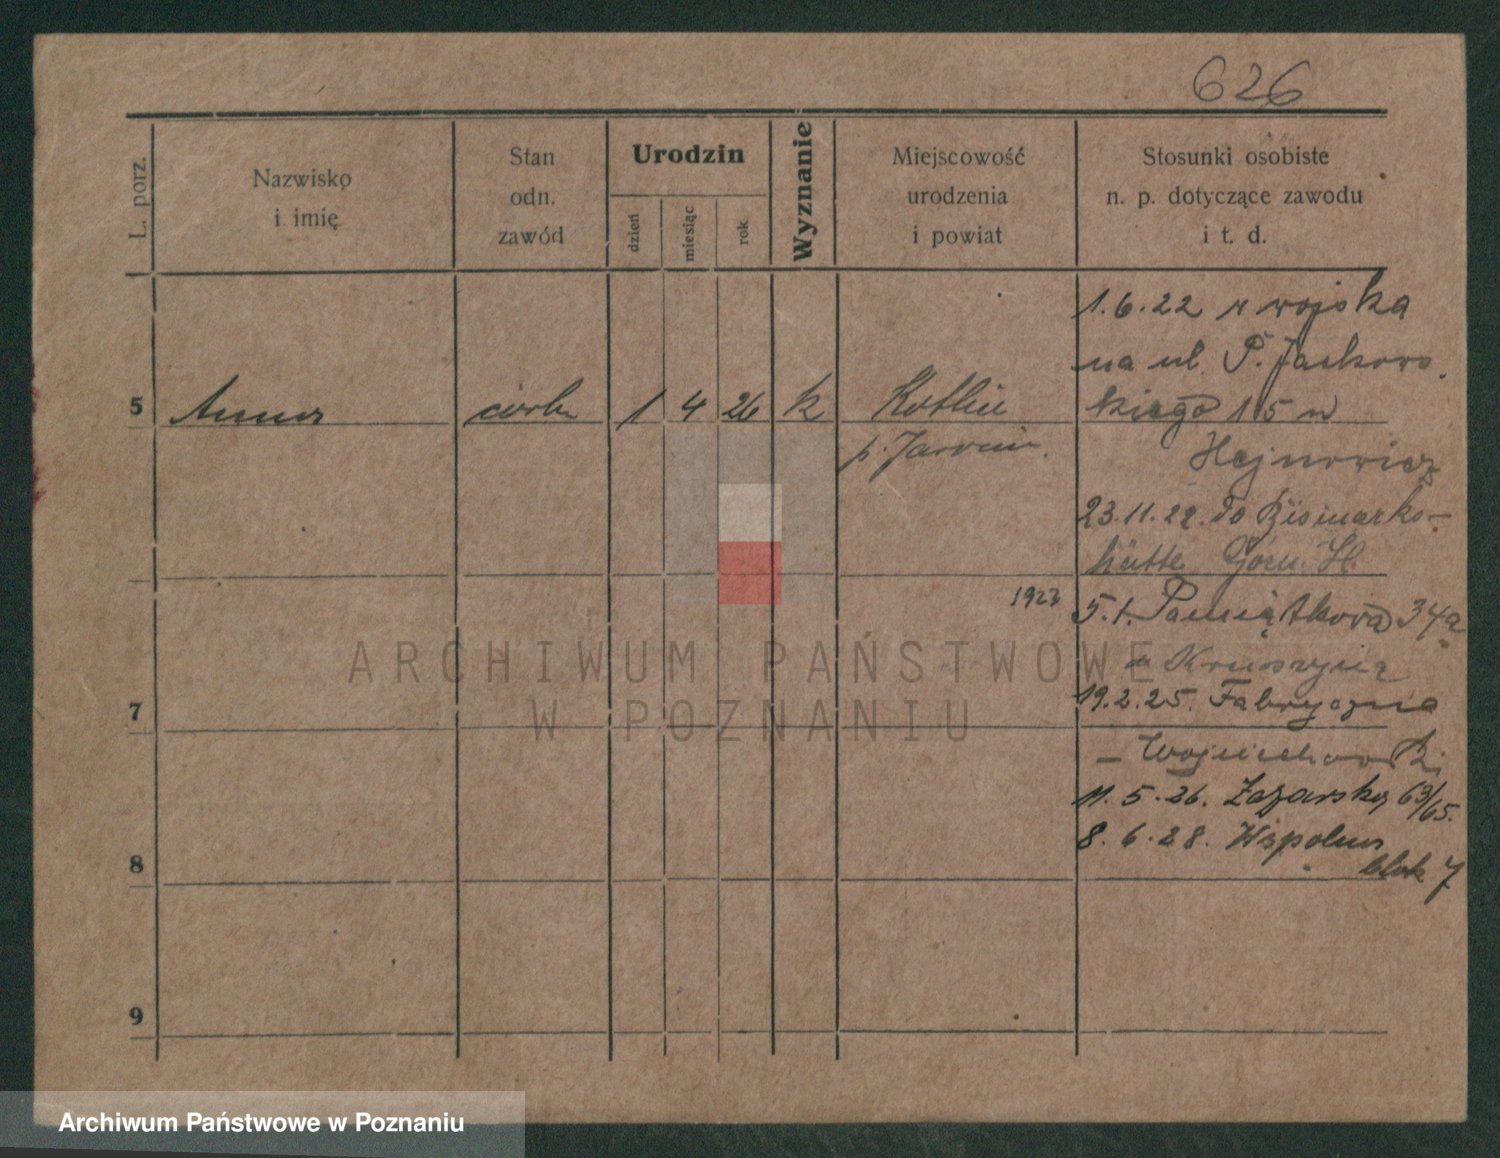 626
L. porz.
Nazwisko
i imię
Stan
odn.
zawód
Urodzin
dzień
miesiąc
rok
Wyznanie
Miejscowość
urodzenia
i powiat
Stosunki osobiste
n. p. dotyczące zawodu
i t. d.
1.6.22 z wojska
na ul. P. Jackows
5 Anna córka 1 4 26 k Kotlin kiego 15 u
p. Jarocin. Hejnowicz
23.11.22. do Bismarko-
hütte Górn. Śl.
1923 5.1. Pamiątkowa 34a
u Kruszyna
19.2.25. Fabryczna
7
– Wojciechowski
11.5.26. Łazarska 63/65.
8.6.28. Wspólna
8 blok 7
9
ARCHIWUM PAŃSTWOWE
W POZNANIU
Archiwum Państwowe w Poznaniu